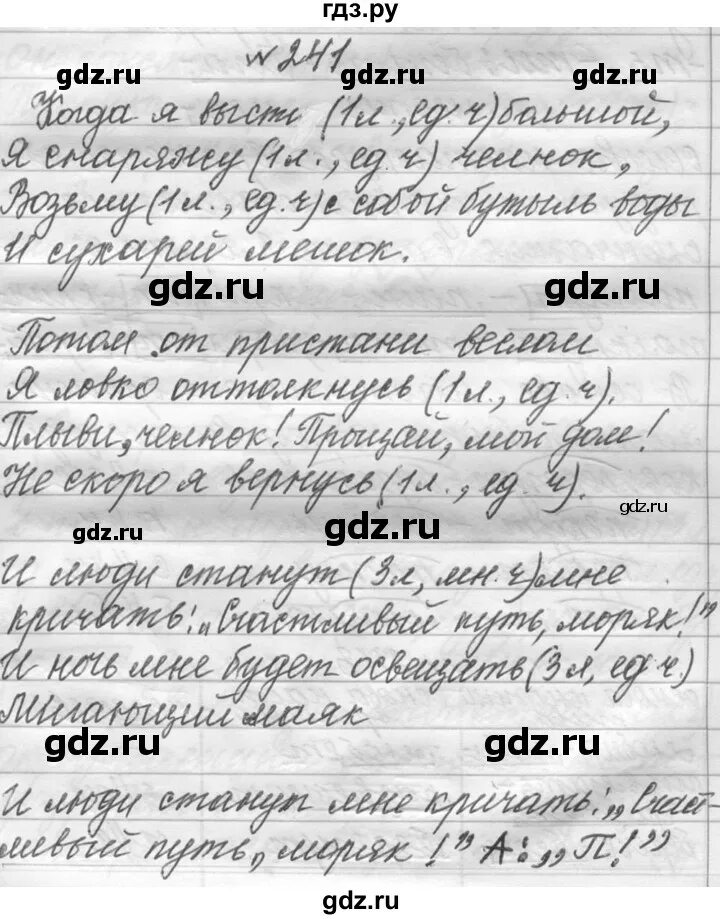 гдз.ру
№ 241
gdz.ru gdz.ru
Когда я высти (1л., ед. ч) большой,
Я снаряжу (1л., ед. ч) челнок,
Возьму (1л., ед. ч) с собой бутыль воды
И сухарей мешок.
gdz.ru gdz.ru
Потом от пристани веслом
Я ловко оттолкнусь (1л., ед. ч).
Плыви, челнок! Прощай, мой дом!
Не скоро я вернусь (1л., ед. ч).
gdz.ru gdz.ru gdz.ru
И люди станут (3л, мн. ч) мне
кричать: „Счастливый путь, моряк!”
И ночь мне будет освещать (3л, ед ч.)
Мигающий маяк
gdz.ru gdz.ru
И люди станут мне кричать: „Счаст-
ливый путь, моряк!” А: „П!”
gdz.ru